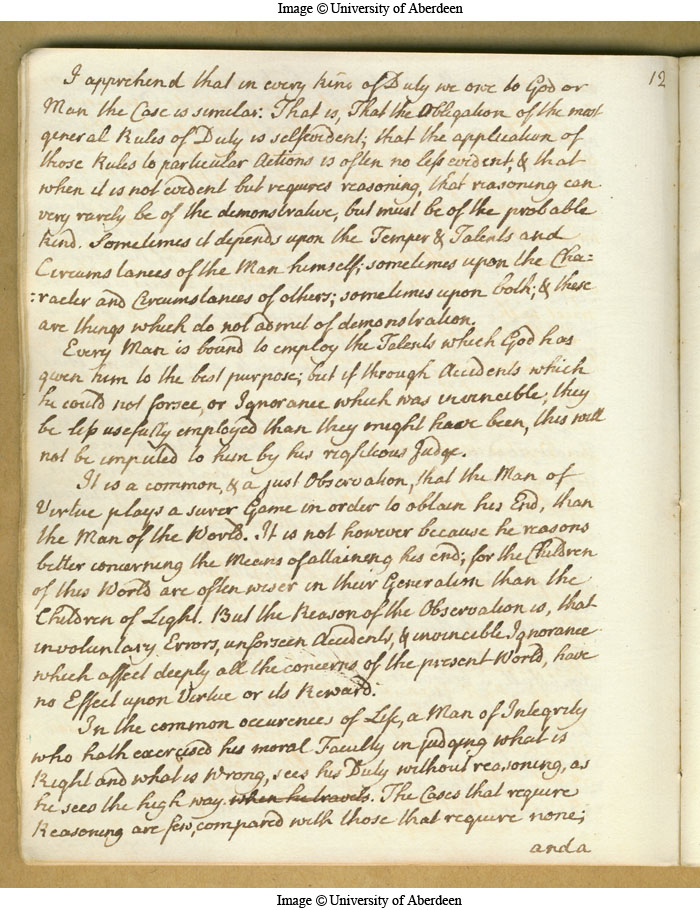 Image © University of Aberdeen
12
I apprehend that in every kind of Duty we owe to God or
Man the Case is similar: That is, That the Obligation of the most
general Rules of Duty is selfevident; that the application of
those Rules to particular Actions is often no less evident, & that
when it is not evident but requires reasoning, that reasoning can
very rarely be of the demonstrative, but must be of the probable
kind. Sometimes it depends upon the Temper & Talents and
Circumstances of the Man himself; sometimes upon the Cha=
:racter and Circumstances of others; sometimes upon both; & these
are things which do not admit of demonstration.
Every Man is bound to employ the Talents which God has
given him to the best purpose; but if through Accidents which
he could not forsee, or Ignorance which was invincible, they
be less usefully employed than they might have been, this will
not be imputed to him by his righteous Judge.
It is a common, & a just Observation, that the Man of
Virtue plays a surer Game in order to obtain his End, than
the Man of the World. It is not however because he reasons
better concerning the Means of attaining his end; for the Children
of this World are often wiser in their Generation than the
Children of Light. But the Reason of the Observation is, that
involuntary Errors, unforseen Accidents, & invincible Ignorance
which affect deeply all the concerns of the present World, have
no Effect upon Virtue or its Reward.
In the common occurences of Life, a Man of Integrity
who hath exercised his moral Faculty in judging what is
Right and what is Wrong, sees his Duty without reasoning, as
he sees the high way when he travels. The Cases that require
Reasoning are few, compared with those that require none;
and a
Image © University of Aberdeen